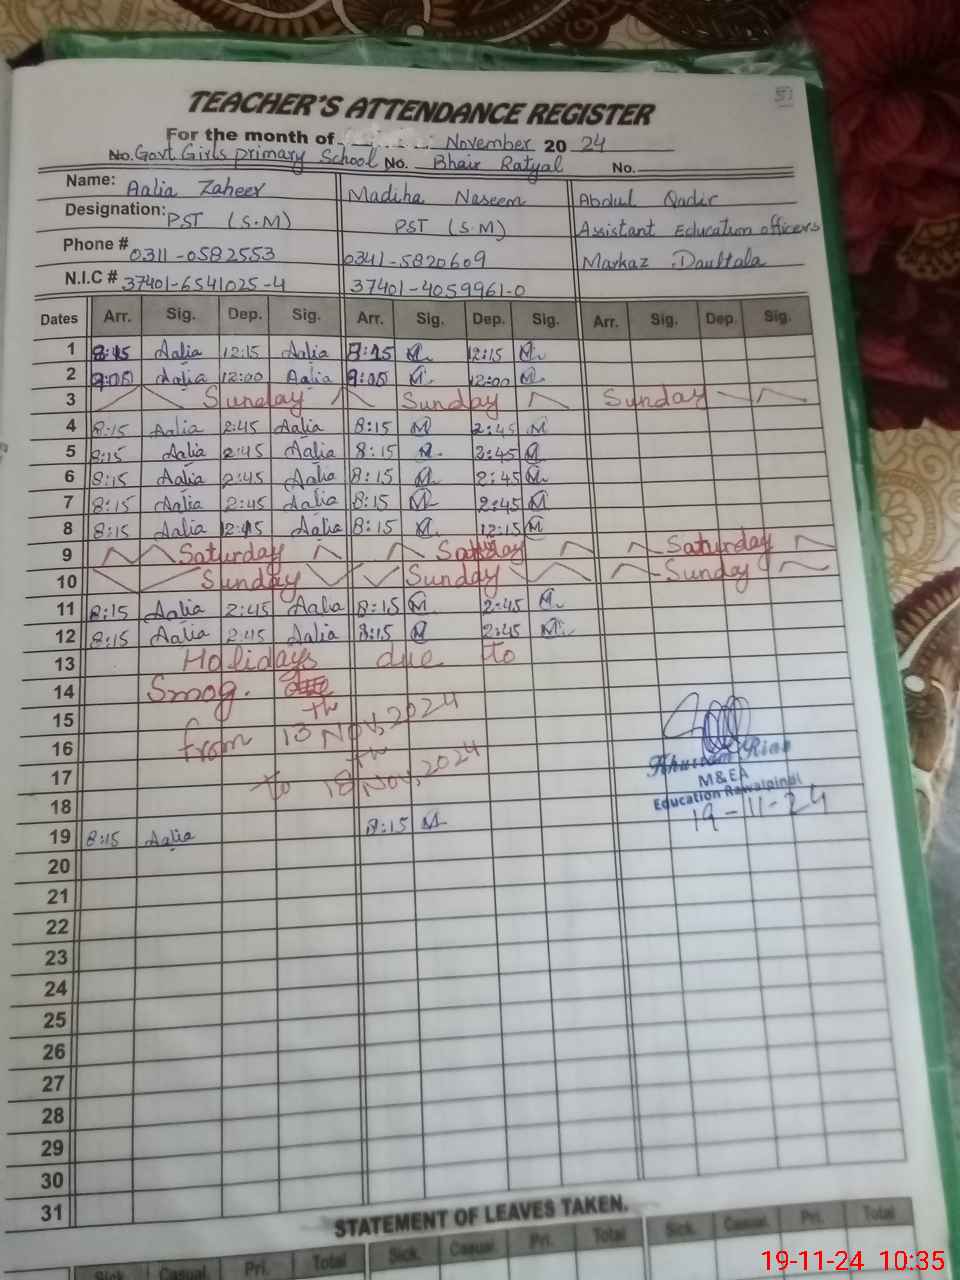 TEACHER'S ATTENDANCE REGISTER
For the month of November 20 24
No. Govt Girls primary School No. Bhair Ratyal No.
Name: Aalia Zaheer Madiha Naseem Abdul Qadir
Designation: PST (S.M) PST (S.M) Assistant Education officers
Phone # 0311-0582553 0341-5820609 Markaz Daultala
N.I.C # 37401-6541025-4 37401-4059961-0
Dates Arr. Sig. Dep. Sig. Arr. Sig. Dep. Sig. Arr. Sig. Dep. Sig.
1 8:15 Aalia 12:15 Aalia 8:15 M. 12:15 M.
2 9:00 Aalia 12:00 Aalia 9:00 M. 12:00 M.
3 Sunday Sunday Sunday
4 8:15 Aalia 2:45 Aalia 8:15 M 2:45 M
5 8:15 Aalia 2:45 Aalia 8:15 M. 2:45 M.
6 8:15 Aalia 2:45 Aalia 8:15 M. 2:45 M.
7 8:15 Aalia 2:45 Aalia 8:15 M. 2:45 M
8 8:15 Aalia 12:15 Aalia 8:15 M. 12:15 M
9 Saturday Saturday Saturday
10 Sunday Sunday Sunday
11 8:15 Aalia 2:45 Aalia 8:15 M. 2:45 M.
12 8:15 Aalia 2:45 Aalia 8:15 M 2:45 M.
13 Holidays due to
14 Smog.
15 from 13th Nov, 2024
16
17 to 18th Nov, 2024
18
Khurram Riaz
M&EA
Education Rawalpindi
19-11-24
19 8:15 Aalia 8:15 M.
20
21
22
23
24
25
26
27
28
29
30
31
STATEMENT OF LEAVES TAKEN.
Sick. Casual. Pri. Total Sick. Casual. Pri. Total Sick. Casual. Pri. Total
19-11-24 10:35